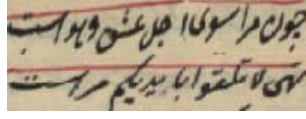 چون مرا سوی اجل عشق و هواست
نهی لا تلقوا بایدیکم مراست